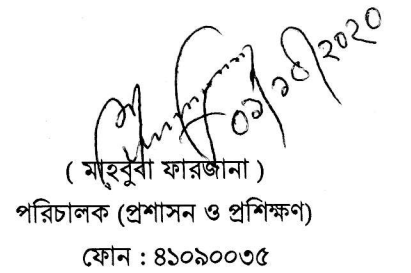 ০১/১০/২০২০
( মাহবুবা ফারজানা )
পরিচালক (প্রশাসন ও প্রশিক্ষণ)
ফোন : ৪১০৯০০৩৫